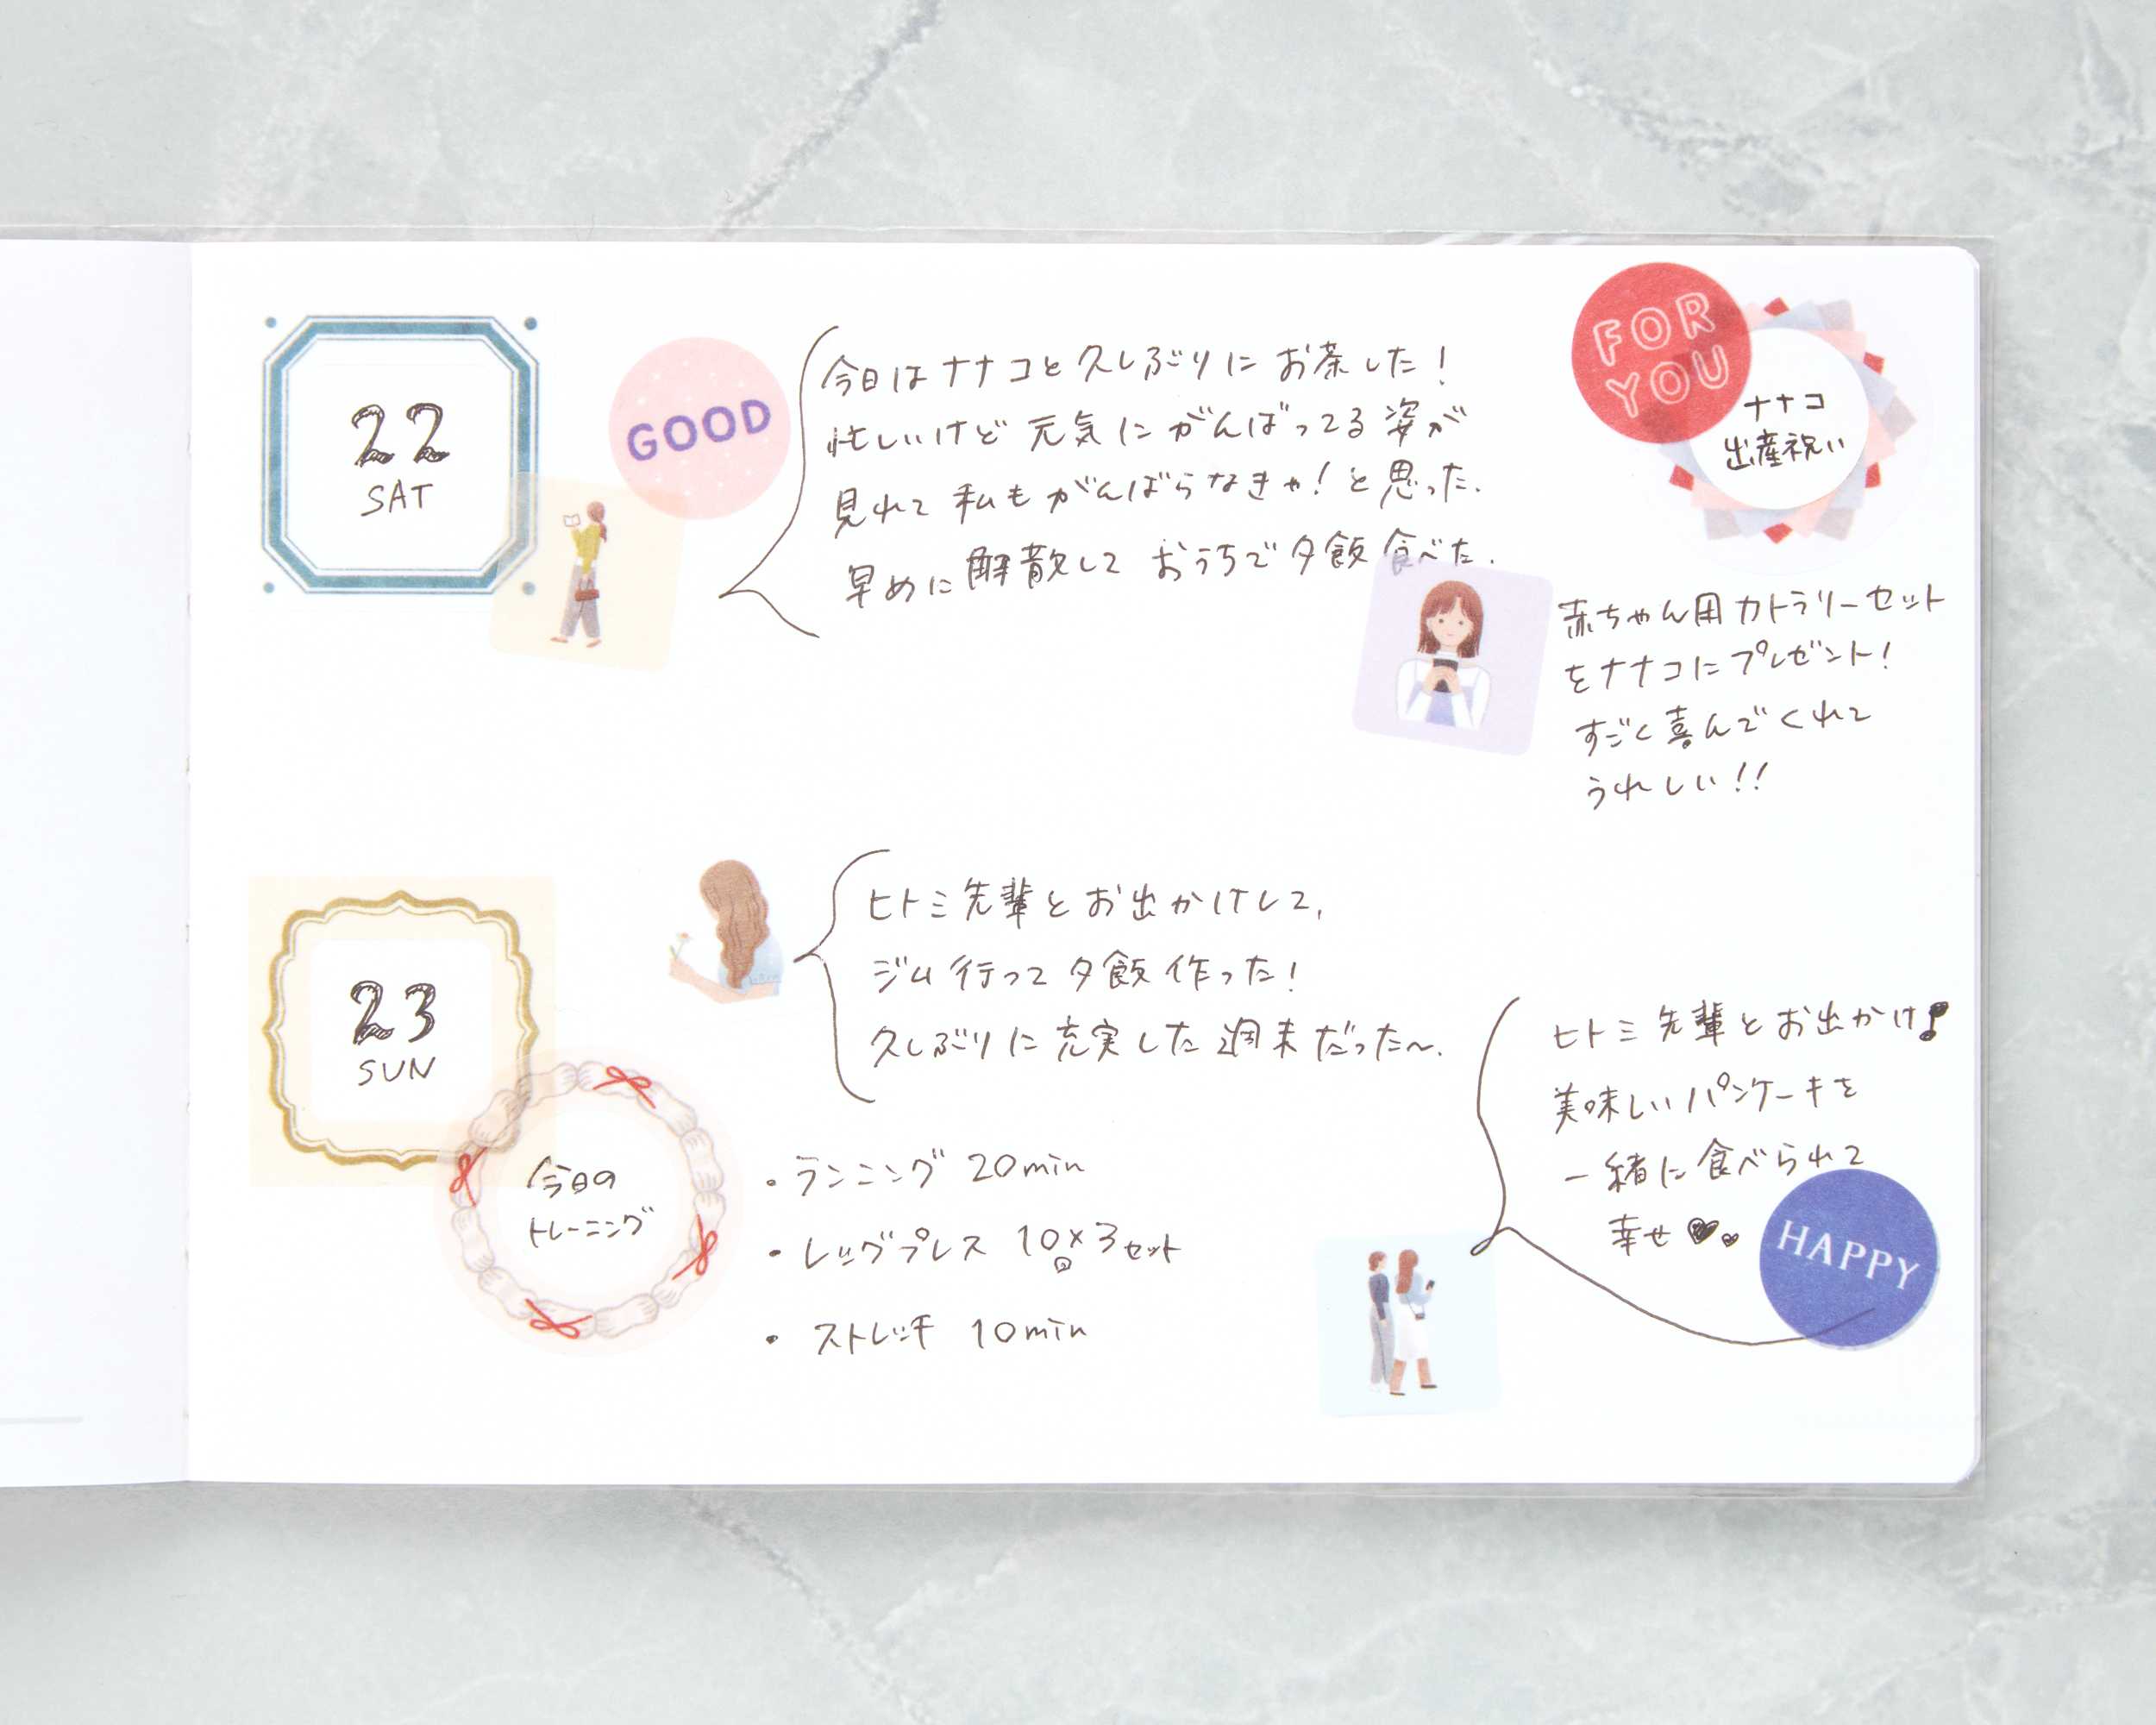 22
SAT
GOOD
今日はナナコと久しぶりにお茶した！
忙しいけど元気にがんばってる姿が
見れて私もがんばらなきゃ！と思った.
早めに解散しておうちで夕飯食べた.
FOR
YOU
ナナコ
出産祝い
赤ちゃん用カトラリーセット
をナナコにプレゼント！
すごく喜んでくれて
うれしい！！
23
SUN
ヒトミ先輩とお出かけして,
ジム行って夕飯作った！
久しぶりに充実した週末だった〜.
今日の
トレーニング
・ランニング 20min
・レッグプレス 10回×3セット
・ストレッチ 10min
ヒトミ先輩とお出かけ♪
美味しいパンケーキを
一緒に食べられて
幸せ♥♥
HAPPY